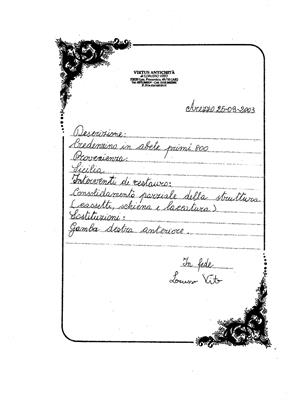 VIRTUS ANTICHITÀ
di LORUSSO VITO
Arezzo 25-09-2003
Descrizione:
Credenzina in abete primi 800
Provenienza:
Sicilia
Interventi di restauro:
Consolidamento parziale della struttura
(cassetti, schiena e laccatura)
Sostituzioni:
Gamba destra anteriore.
In fede
Lorusso Vito